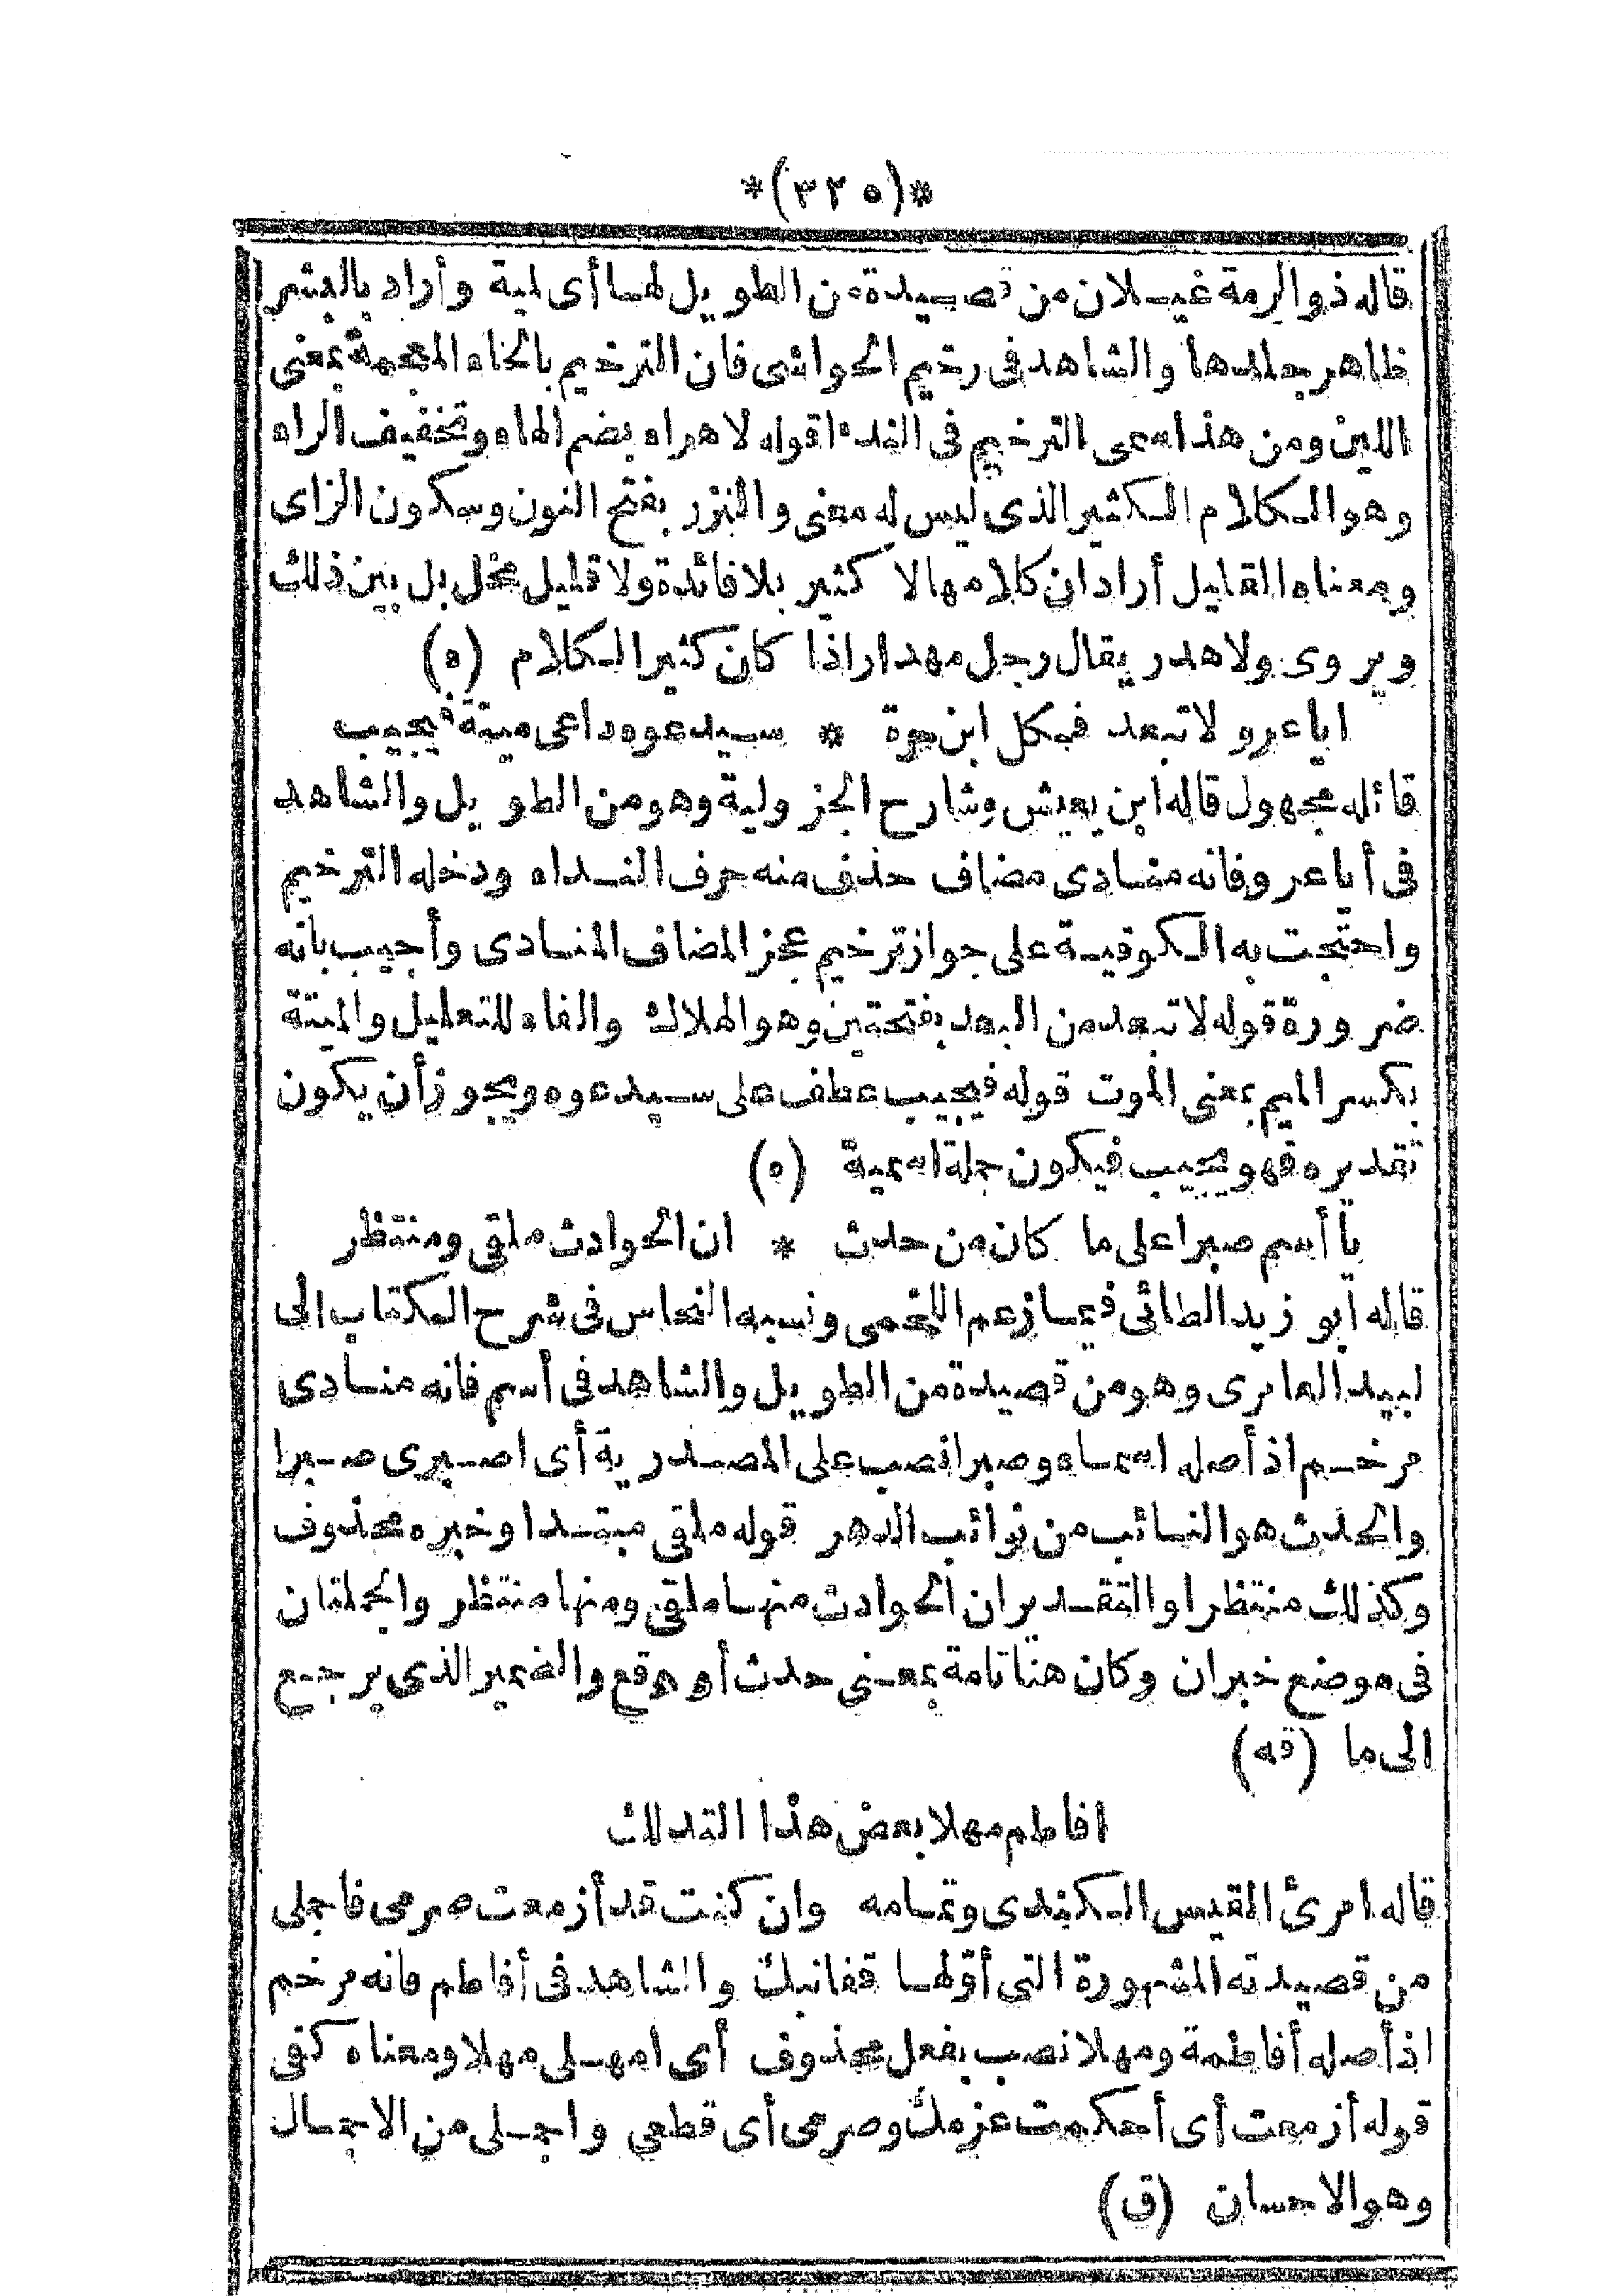 *(٣٢٥)*
قاله ذو الرمة غيلان من قصيدة من الطويل لها أى لمية وأراد بالبشر
ظاهر جلدها والشاهد فى رخيم الحواشى فان الترخيم بالخاء المعجمة بمعنى
اللين ومن هذا سمى الترخيم فى النداء قوله لا هراء بضم الهاء وتخفيف الراء
وهو الكلام الكثير الذى ليس له معنى والنزر بفتح النون وسكون الزاى
ومعناه القليل أراد ان كلامها لا كثير بلا فائدة ولا قليل مخل بل بين ذلك
ويروى ولا هدر يقال رجل مهدار اذا كان كثير الكلام (ه)
ايا عرو لا تبعد فكل ابن حرة * سيدعوه داعى ميتة فيجيب
قائله مجهول قاله ابن يعيش وشارح الجزولية وهو من الطويل والشاهد
فى أبا عرو فانه منادى مضاف حذف منه حرف النداء ودخله الترخيم
واحتجت به الكوفية على جواز ترخيم عجز المضاف المنادى وأجيب بانه
ضرورة قوله لا تبعد من البعد بفتحتين وهو الهلاك والفاء للتعليل والميتة
بكسر الميم بمعنى الموت قوله فيجيب عطف على سيدعوه ويجوز أن يكون
تقديره فهو يجيب فيكون جملة اسمية (ه)
يا أسم صبرا على ما كان من حدث * ان الحوادث ملقى ومنتظر
قاله أبو زيد الطائى فيما زعم اللخمى ونسبه النحاس فى شرح الكتاب الى
لبيد العامرى وهو من قصيدة من الطويل والشاهد فى أسم فانه منادى
مرخم اذ أصله اسماء وصبرا نصب على المصدرية أى اصبرى صبرا
والحدث هو النائب من نوائب الدهر قوله ملقى مبتدا وخبره محذوف
وكذلك منتظر او التقدير ان الحوادث منها ملقى ومنها منتظر والجملتان
فى موضع خبران وكان هنا تامة بمعنى حدث أو وقع والضمير الذى يرجع
الى ما (قه)
افاطم مهلا بعض هذا التدلل
قاله امرئ القيس الكندى وتمامه وان كنت قد أزمعت صرمى فاجملى
من قصيدته المشهورة التى أوّلها قفانبك والشاهد فى أفاطم فانه مرخم
اذ أصله أفاطمة ومهلا نصب بفعل محذوف أى امهلى مهلا ومعناه كفى
قوله أزمعت أى أحكمت عزمك وصرمى أى قطعى واجملى من الاجمال
وهو الاحسان (ق)